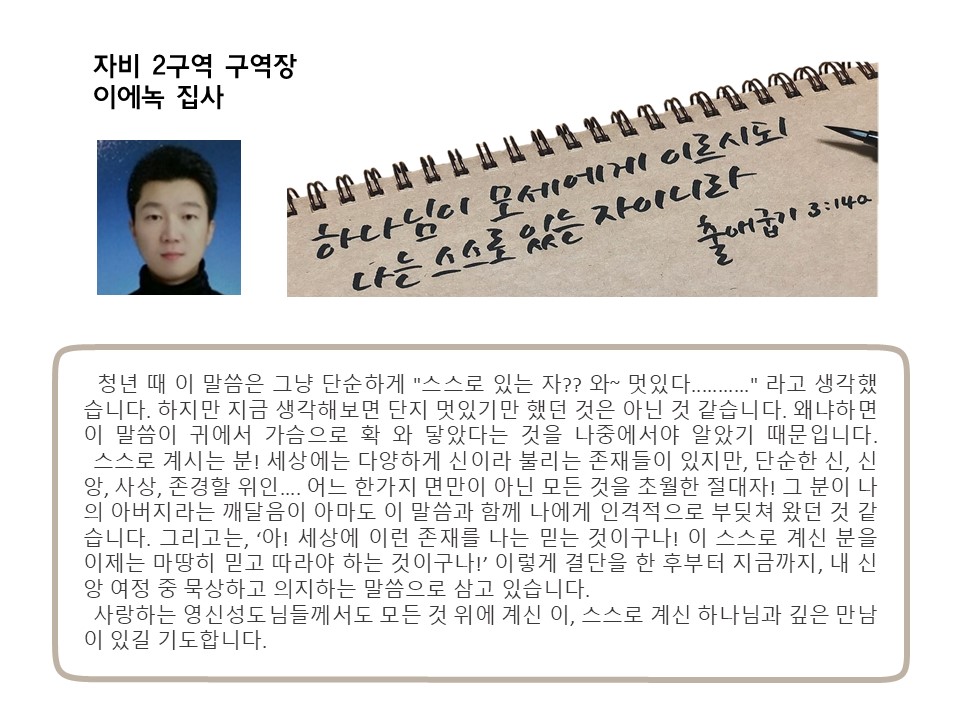 자비 2구역 구역장
이에녹 집사
하나님이 모세에게 이르시되
나는 스스로 있는 자이니라
출애굽기 3:14a
청년 때 이 말씀은 그냥 단순하게 "스스로 있는 자?? 와~ 멋있다..........." 라고 생각했
습니다. 하지만 지금 생각해보면 단지 멋있기만 했던 것은 아닌 것 같습니다. 왜냐하면
이 말씀이 귀에서 가슴으로 확 와 닿았다는 것을 나중에서야 알았기 때문입니다.
스스로 계시는 분! 세상에는 다양하게 신이라 불리는 존재들이 있지만, 단순한 신, 신
앙, 사상, 존경할 위인.... 어느 한가지 면만이 아닌 모든 것을 초월한 절대자! 그 분이 나
의 아버지라는 깨달음이 아마도 이 말씀과 함께 나에게 인격적으로 부딪쳐 왔던 것 같
습니다. 그리고는, ‘아! 세상에 이런 존재를 나는 믿는 것이구나! 이 스스로 계신 분을
이제는 마땅히 믿고 따라야 하는 것이구나!’ 이렇게 결단을 한 후부터 지금까지, 내 신
앙 여정 중 묵상하고 의지하는 말씀으로 삼고 있습니다.
사랑하는 영신성도님들께서도 모든 것 위에 계신 이, 스스로 계신 하나님과 깊은 만남
이 있길 기도합니다.